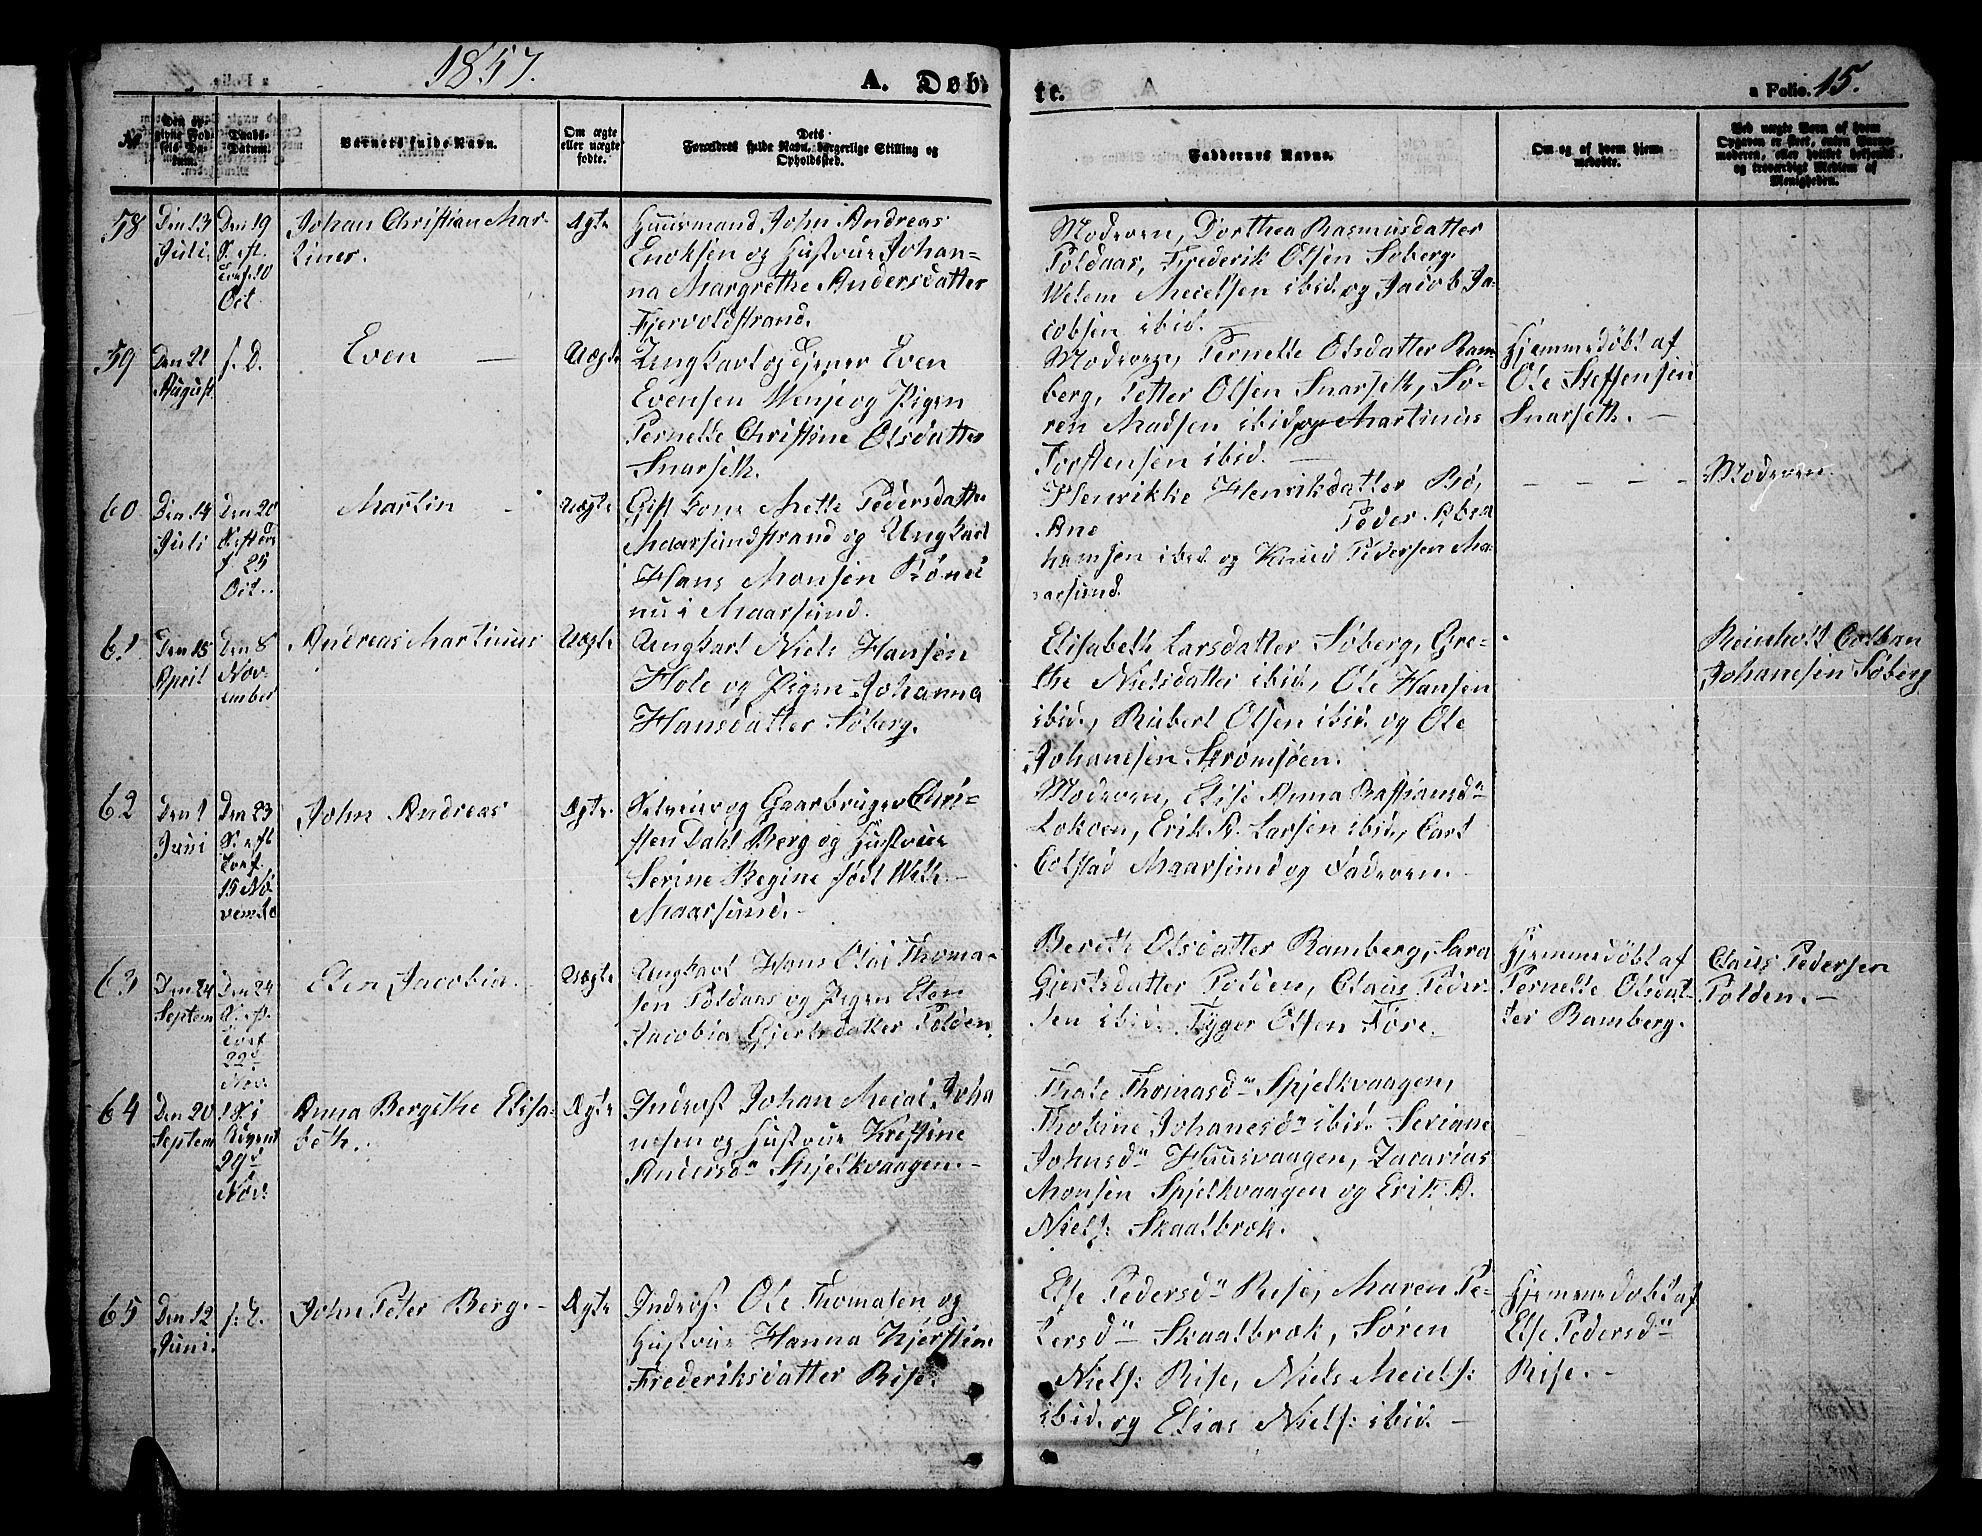 1857.
A. Døb-
te.
a Folio. 15.
No
Den op-
givne Fød-
sels Da-
tum.
Daabs-
Datum.
Barnets fulde Navn.
Om ægte
eller uægte
fødte.
Dets
Forældres fulde Navn, borgerlige Stilling og
Opholdssted.
Faddernes Navne.
Om og af hvem hjem-
medøbte.
Ved uægte Børn af hvem
Opgaven er skeet, enten
moderen, eller hvilket bekjendt
og troværdigt Medlem af
Menigheden.
58
Den 13
Juli.
Den 19
S. eft
Tref. 10
Oct.
Johan Christian Mar-
tiner.
Ægte
Huusmand John Andreas
Enoksen og Hustrue Johan-
na Margrethe Andersdatter
Fjervoldstrand.
Moderen, Dorthea Rasmusdatter
Poldaas, Frederik Olsen Søberg,
Welem Meielsen ibid. og Jacob Ja-
cobsen ibid.
59
Den 22
August
f. D.
Even
Uægte
Ungkarl og Ejener Even
Evensen Menje og Pigen
Pernelle Christine Olsdatter
Snarseth.
Moderen, Pernelle Olsdatter Ram
berg, Petter Olsen Snarseth, Sø-
ren Madsen ibid og Martinus
Torstensen ibid.
Hjemmedøbt af
Ole Steffensen
Snarseth.
60
Den 14
Juli
Den 20
S. eft Tre
f 25
Oct.
Martin
Uægte
Gift Kone Mette Pedersdatter
Maarsundstrand og Ungkarl
Hans Monsen Bønes
nu i Maarsund.
Henrikke Henriksdatter Bø,
Ane Peder Abra
hamsen ibid og Knud Pedersen Ma-
arsund.
Moderen
61
Den 15
April
Den 8
Nov-
ember
Andreas Martinus
Uægte
Ungkarl Niels Hansen
Hole og Pigen Johanna
Hansdatter Søberg.
Elisabeth Larsdatter Søberg, Gre-
the Nielsdatter ibid, Ole Hansen
ibid., Rubert Olsen ibid. og Ole
Johanesen Strømsøen.
Reinholt Colban
Johanesen Søberg
62
Den 1
Juni
Den 23
S. eft
Tref.
15 No-
vember
John Andreas
Ægte.
Selveier og Gaarbruger Chri-
sten Dahl Berg og Hustrue
Serine Regine født Weth
Maarsund.
Moderen, Elise Anna Bastiansd.
Lokøen, Erik A. Larsen ibid, Carl
Colstad Maarsund og Faderen.
63
Den 24
Septem
Den 24
S. ef.
Tref
22d
Nov.
Elen Jacobia.
Uægte
Ungkarl Hans Olai Thoma-
sen Poldaas og Pigen Elen
Jacobia Gjertsdatter Polden
Bereth Olsdatter Ramberg, Sara
Gjertsdatter Polden, Claus Peder-
sen ibid. Tyger Olsen Føre.
Hjemmedøbt af
Pernelle Olsdat-
ter Ramberg.
Claus Pedersen
Polden.
64
Den 20
Septem
1 S. i
Advent
29d
Nov.
Anna Bergithe Elisa-
beth.
Ægte
Inderst Johan Meial Joha
nesen og Hustrue Kristine
Andersd. Spjelkvaagen.
Thale Thomasd. Spjelkvaagen,
Thobine Johanesd. ibid. Seriane
Johnsd. Huusvaagen, Zacarias
Monsen Spjelkvaagen og Erik A.
Niels: Skaalbrok.
65
Den 12
Juni.
f. D.
John Peter Berg.
Ægte
Inderst Ole Thomasen og
Hustrue Hanna Kjerstine
Frederiksdatter Rise.
Else Pedersd. Rise, Maren Pe-
tersd. Skaalbrok, Søren
Niels: Rise, Niels Meiels:
ibid. og Elias Niels: ibid
Hjemmedøbt af
Else Pedersd.
Rise.